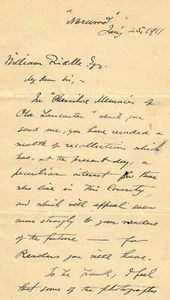 "Norwood"
July 25, 1911
William Riddle Esq.
My dear Sir,—
In "Cherished Memories of
Old Lancaster" which you
send me, you have recorded a
wealth of recollections which
has, at the present day, a
peculiar interest for those
who live in this County—
and which will appeal even
more strongly to your readers
of the future — for
Readers you will have.
To be frank, I feel
that some of the photographs